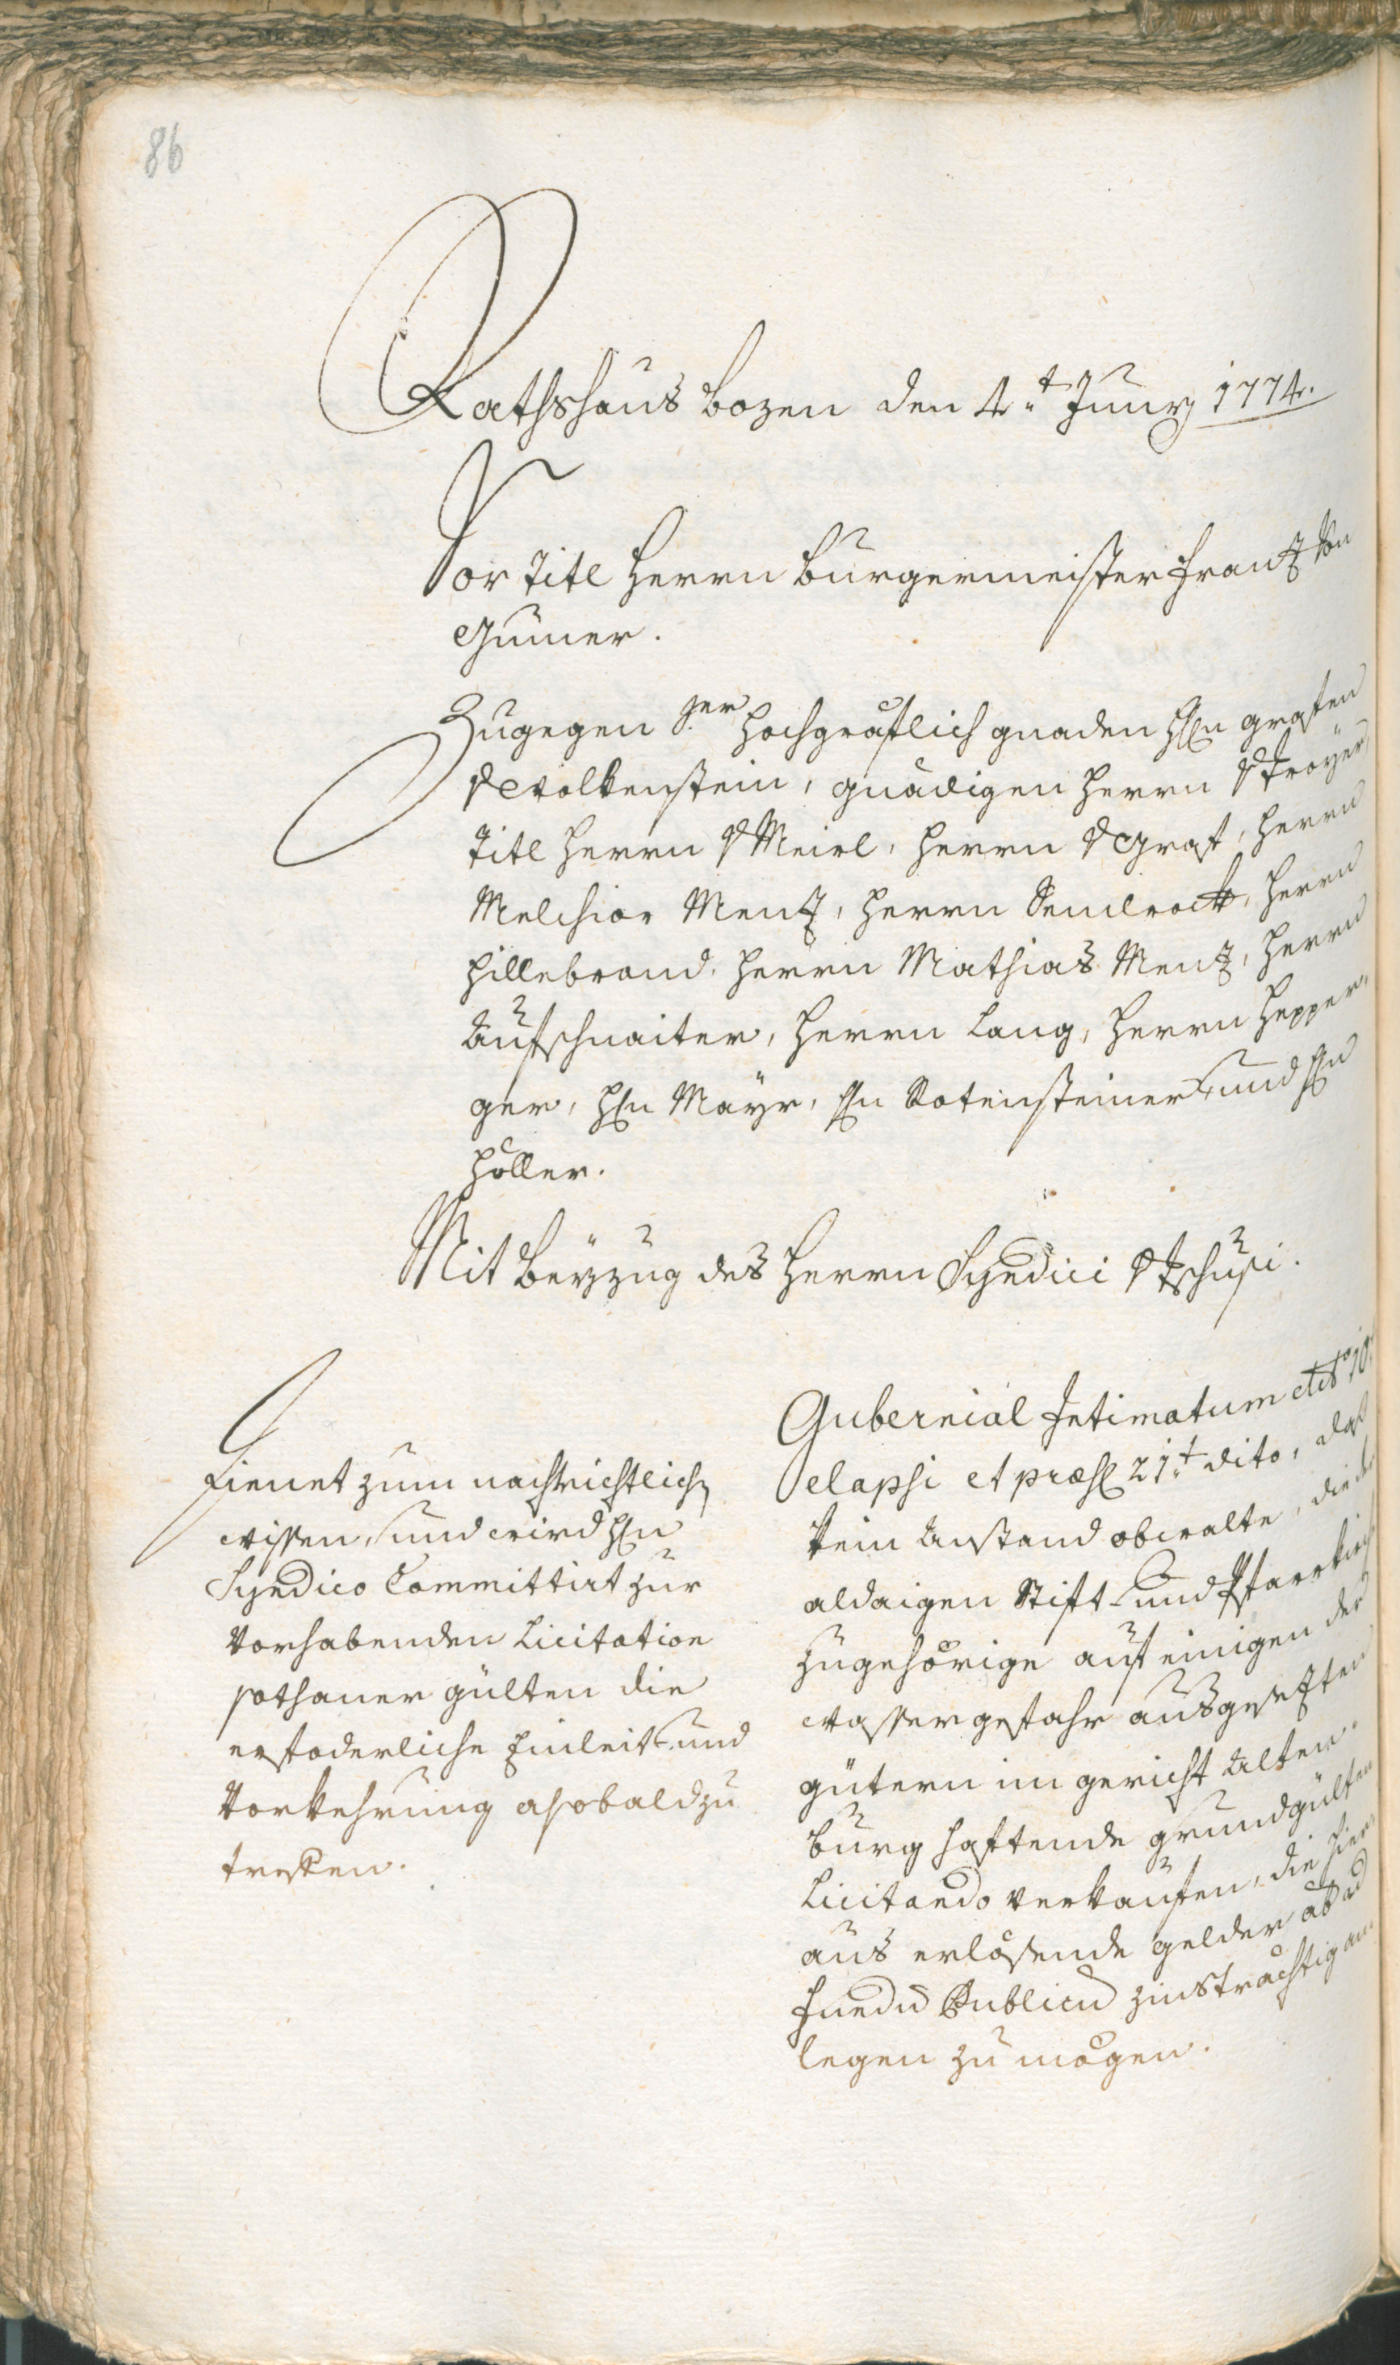 86
Rathshaus Bozen den 4.t Juny 1774.
Vor Titl Herrn Burgermeister Frantz Von
Gumer.
Zugegen Ser Hochgräflich gnaden H̄n grafen
v Wolkenstein, gnädigen Herrn v Troyer
Titl Herrn v Meirl, Herrn v Graf, Herrn
Melchior Menz, Herrn Kemlrock, Herrn
Hillebrand, Herrn Mathias Menz, Herrn
Aufschnaiter, Herrn Lang, Herrn Hepper,
ger, H̄n Mayr, H̄n Rotensteiner und H̄n
Höller.
Mit Beyzug des Herrn Syndici v Tschusi.
Dienet zum nachrichtlichen
wissen, und wird H̄n
Syndico Committirt zur
vorhabenden Licitation
sothaner gülten die
erfoderliche Einleit- und
Vorkehrung alsobald zu
treffen.
Gubernial Intimatum dto 10
elapsi et præs 21.t dito, daß
kein Anstand obwalte, die der
aldaigen Stift- und Pfarrkirch
zugehörige auf einigen der
wassergefahr ausgesetzten
gütern im gericht Alten-
burg haftende grundgülten
Licitando verkaufen, die hier-
aus erlösende gelder ab ad
Fundū Publicū zinsträchtig an
legen zu mögen.